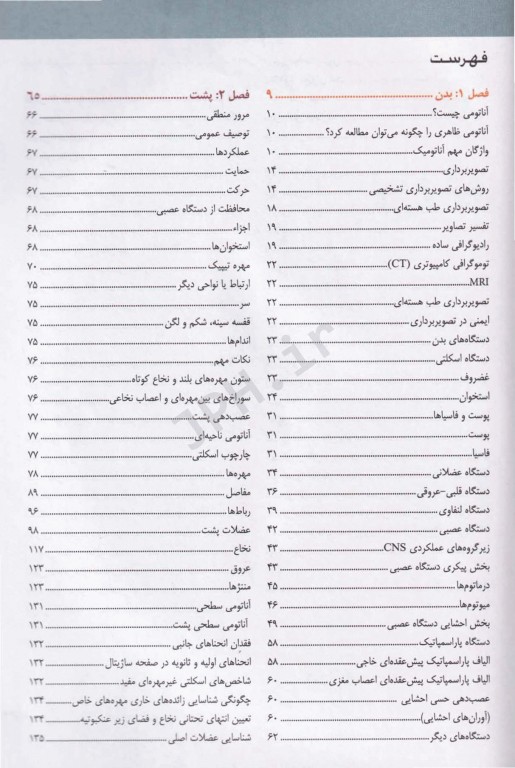 فهرست
فصل ۱: بدن ..... ۹
آناتومی چیست؟ ..... ۱۰
آناتومی ظاهری را چگونه می‌توان مطالعه کرد؟ ..... ۱۰
واژگان مهم آناتومیک ..... ۱۰
تصویربرداری ..... ۱۴
روش‌های تصویربرداری تشخیصی ..... ۱۴
تصویربرداری طب هسته‌ای ..... ۱۸
تفسیر تصاویر ..... ۱۹
رادیوگرافی ساده ..... ۱۹
توموگرافی کامپیوتری (CT) ..... ۲۲
MRI ..... ۲۲
تصویربرداری طب هسته‌ای ..... ۲۲
ایمنی در تصویربرداری ..... ۲۲
دستگاه‌های بدن ..... ۲۳
دستگاه اسکلتی ..... ۲۳
غضروف ..... ۲۳
استخوان ..... ۲۴
پوست و فاسیاها ..... ۳۱
پوست ..... ۳۱
فاسیا ..... ۳۱
دستگاه عضلانی ..... ۳۴
دستگاه قلبی-عروقی ..... ۳۶
دستگاه لنفاوی ..... ۳۹
دستگاه عصبی ..... ۴۲
زیرگروه‌های عملکردی CNS ..... ۴۳
بخش پیکری دستگاه عصبی ..... ۴۳
درماتوم‌ها ..... ۴۵
میوتوم‌ها ..... ۴۶
بخش احشایی دستگاه عصبی ..... ۴۹
دستگاه پاراسمپاتیک ..... ۵۸
الیاف پاراسمپاتیک پیش‌عقده‌ای خاجی ..... ۵۸
الیاف پاراسمپاتیک پیش‌عقده‌ای اعصاب مغزی ..... ۶۰
عصب‌دهی حسی احشایی ..... ۶۰
(آوران‌های احشایی) ..... ۶۰
دستگاه‌های دیگر ..... ۶۲
فصل ۲: پشت ..... ۶۵
مرور منطقی ..... ۶۶
توصیف عمومی ..... ۶۶
عملکردها ..... ۶۷
حمایت ..... ۶۷
حرکت ..... ۶۷
محافظت از دستگاه عصبی ..... ۶۸
اجزاء ..... ۶۸
استخوان‌ها ..... ۶۸
مهره تیپیک ..... ۷۰
ارتباط با نواحی دیگر ..... ۷۵
سر ..... ۷۵
قفسه سینه، شکم و لگن ..... ۷۵
اندام‌ها ..... ۷۵
نکات مهم ..... ۷۶
ستون مهره‌های بلند و نخاع کوتاه ..... ۷۶
سوراخ‌های بین‌مهره‌ای و اعصاب نخاعی ..... ۷۶
عصب‌دهی پشت ..... ۷۷
آناتومی ناحیه‌ای ..... ۷۷
چارچوب اسکلتی ..... ۷۷
مهره‌ها ..... ۷۸
مفاصل ..... ۸۹
رباط‌ها ..... ۹۶
عضلات پشت ..... ۹۸
نخاع ..... ۱۱۷
عروق ..... ۱۲۳
مننژها ..... ۱۲۳
آناتومی سطحی ..... ۱۳۱
آناتومی سطحی پشت ..... ۱۳۱
فقدان انحناهای جانبی ..... ۱۳۲
انحناهای اولیه و ثانویه در صفحه ساژیتال ..... ۱۳۲
شاخص‌های اسکلتی غیرمهره‌ای مفید ..... ۱۳۲
چگونگی شناسایی زائده‌های خاری مهره‌های خاص ..... ۱۳۴
تعیین انتهای تحتانی نخاع و فضای زیر عنکبوتیه ..... ۱۳۴
شناسایی عضلات اصلی ..... ۱۳۵
JPH.ir